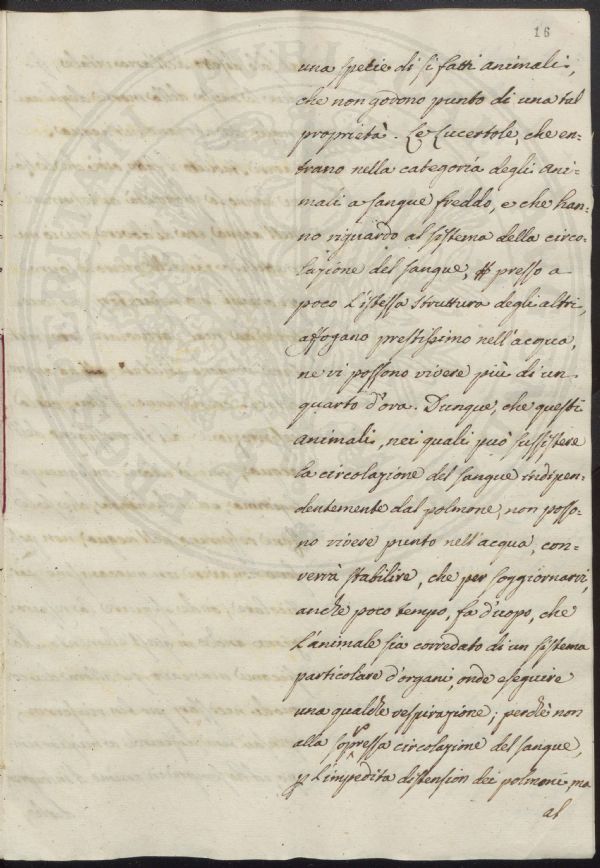 16
una spetie di si fatti animali,
che non godono punto di una tal
proprietà. Le Lucertole, che en-
trano nella categoria degli ani-
mali a sangue freddo, e che han-
no riguardo al sistema della circo-
lazione del sangue, presso a
poco l'istessa struttura degli altri,
affogano prestissimo nell'acqua,
ne vi possono vivere più di un
quarto d'ora. Dunque, che questi
animali, nei quali può sussistere
la circolazione del sangue indipen-
dentemente dal polmone, non posso-
no vivere punto nell'acqua, con-
verrà stabilire, che per soggiornarvi,
anche poco tempo, fa d'uopo, che
l'animale sia corredato di un sistema
particolare d'organi, onde eseguire
una qualche respirazione; perchè non
alla soppressa circolazione del sangue,
p l'impedita distension dei polmoni ma
al